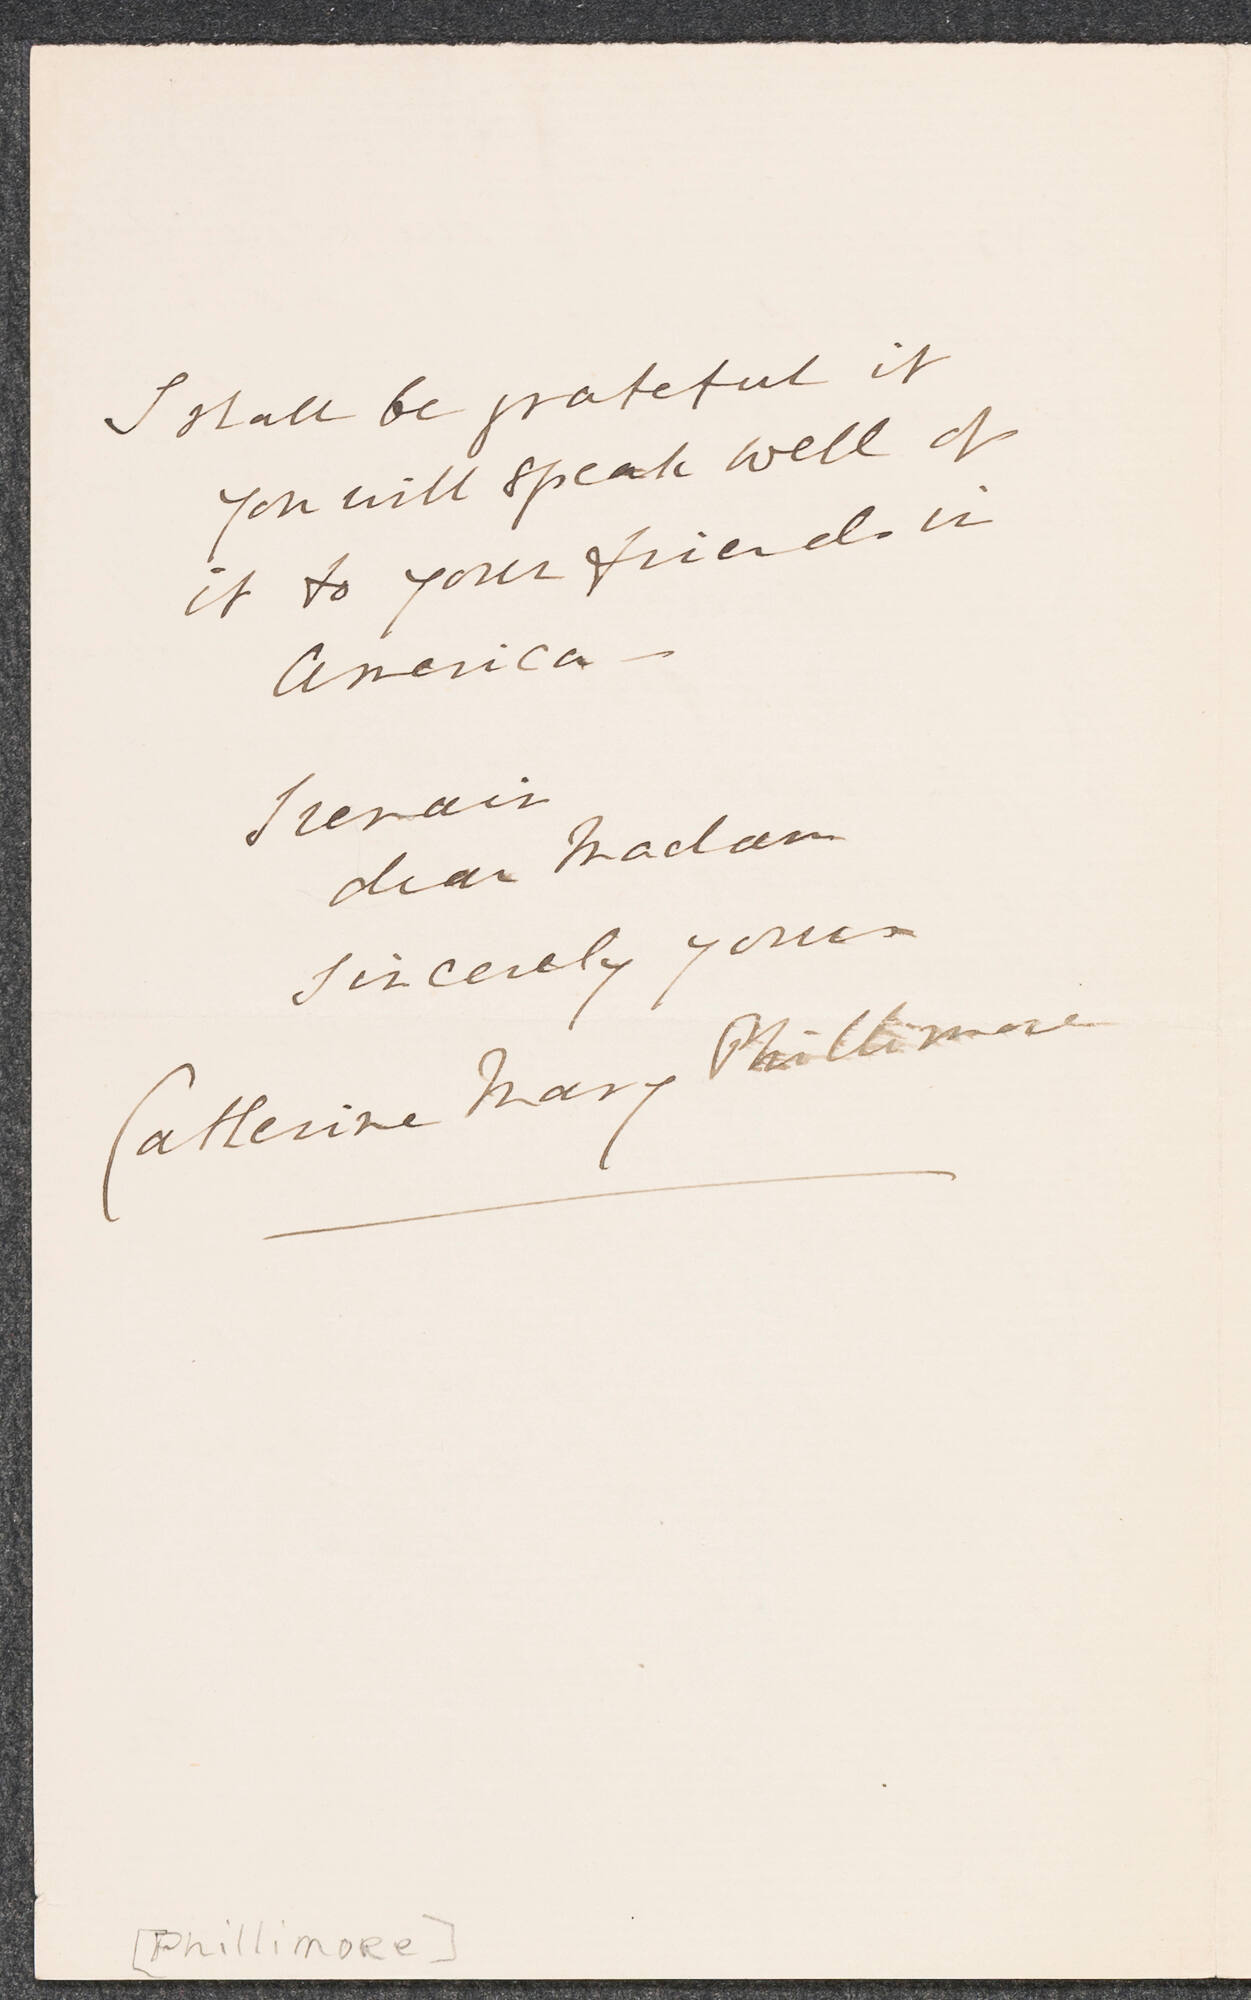 I shall be grateful if
you will speak well of
it to your friends in
America —
I remain
dear Madam
sincerely yours
Catherine Mary Phillimore
[Phillimore]